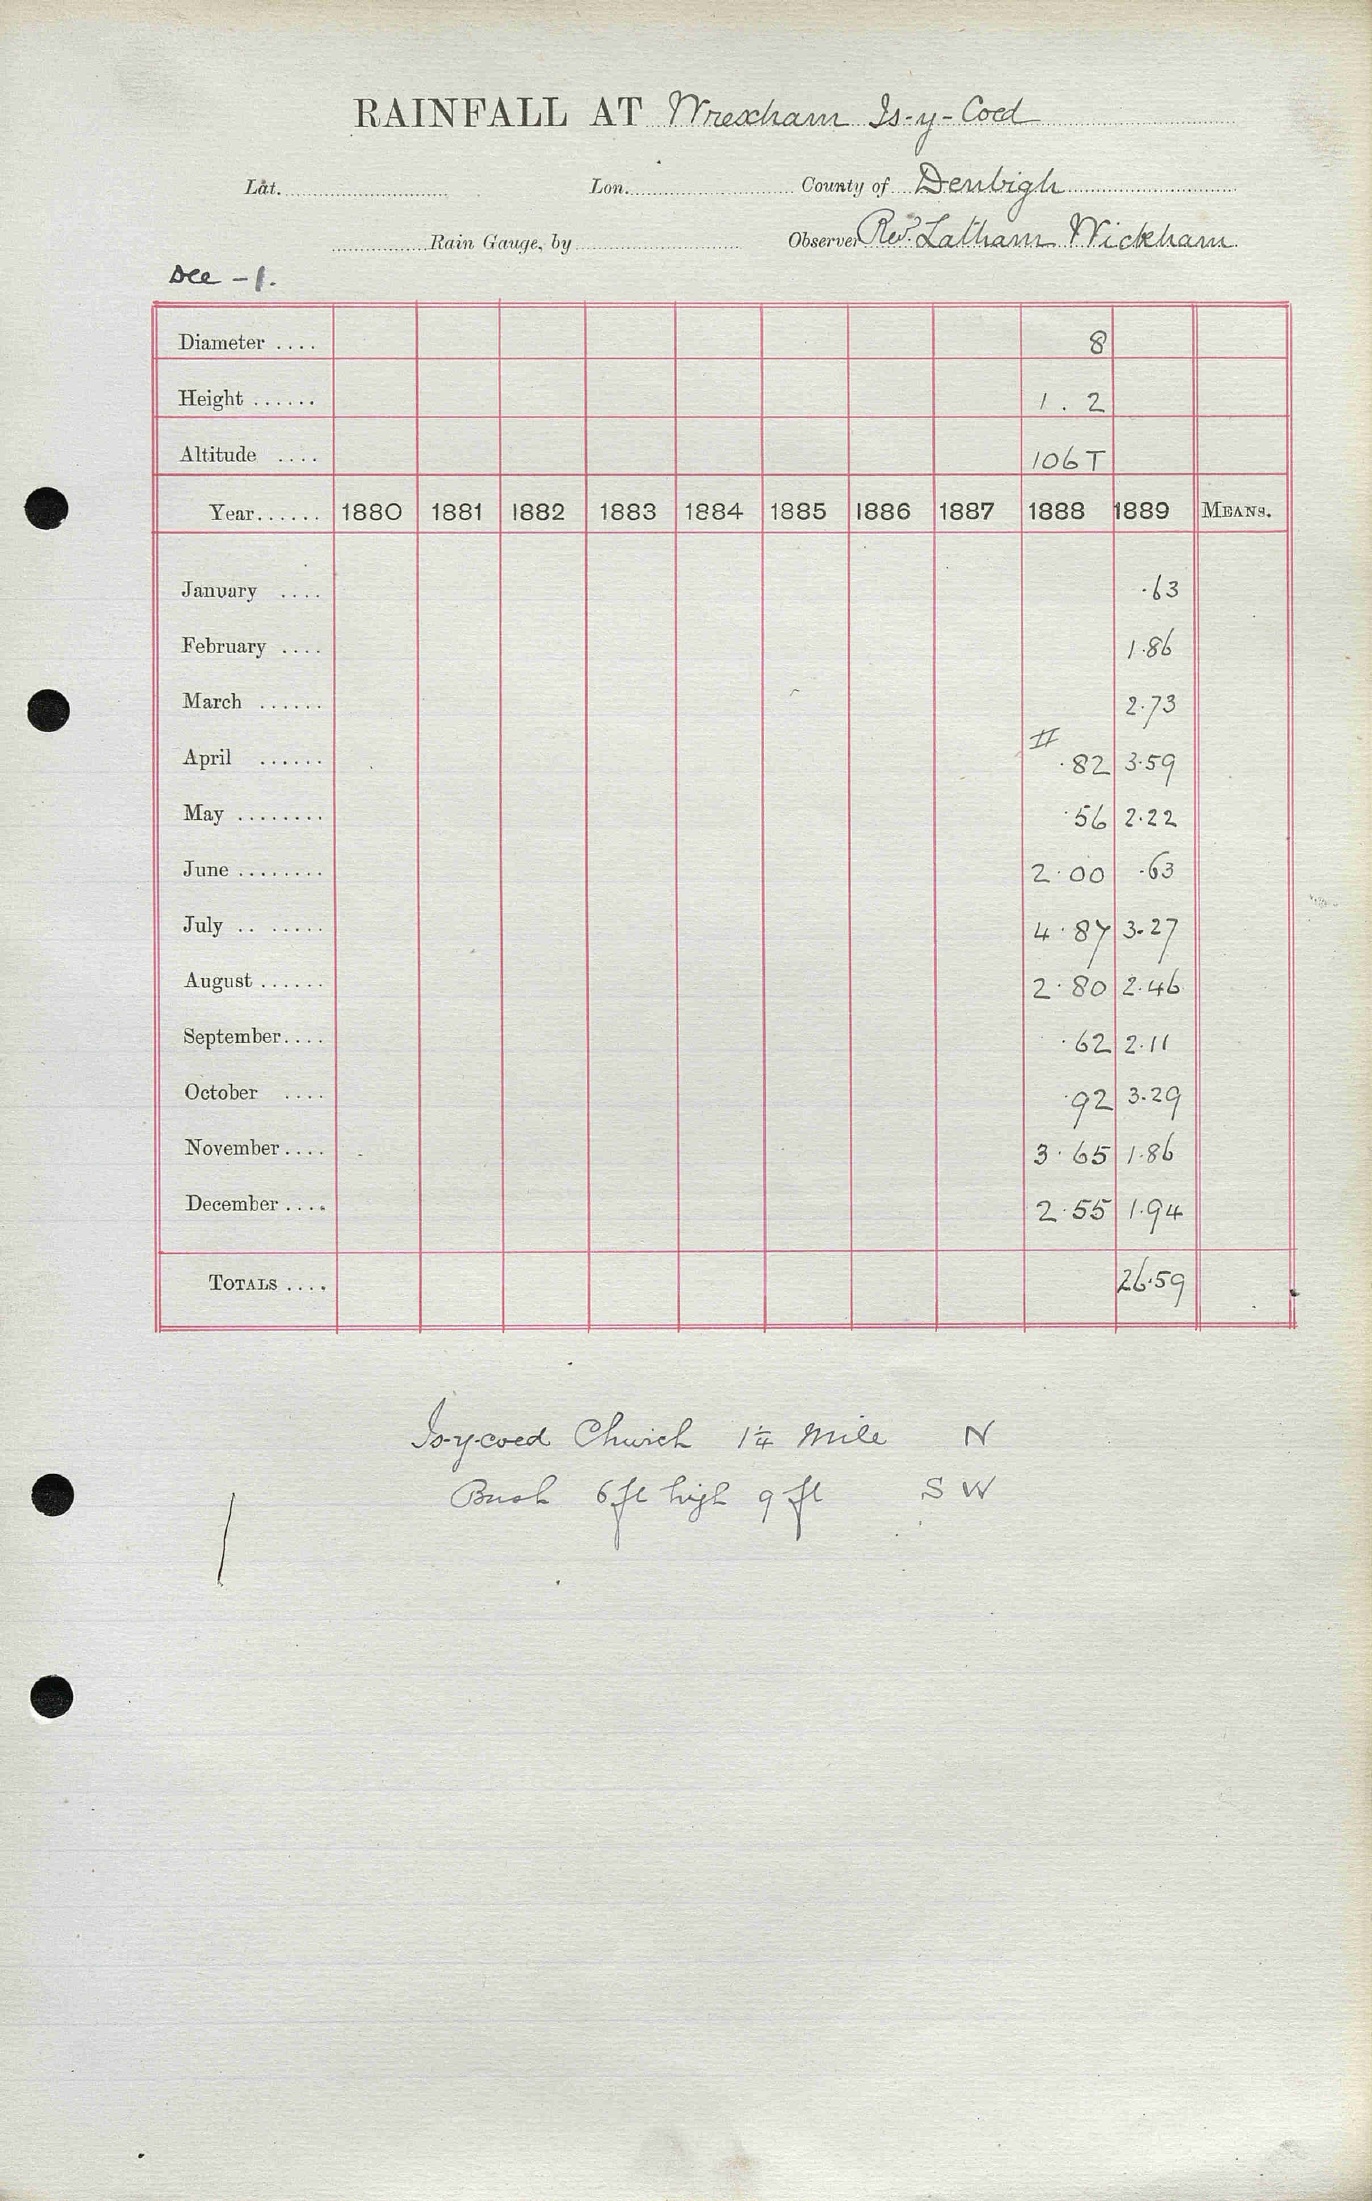 RAINFALL AT Wrexham Is-y-Coed
Lat. Lon. County of Denbigh
Rain Gauge, by Observer Revd. Latham Wickham
Dee - 1.
Diameter .... 8
Height ...... 1. 2
Altitude .... 106 T
Year...... 1880 1881 1882 1883 1884 1885 1886 1887 1888 1889 MEANS.
January .... ·63
February .... 1·86
March ...... 2·73
II
April ...... ·82 3·59
May ........ ·56 2·22
June ........ 2·00 ·63
July .. ..... 4·87 3·27
August ...... 2·80 2·46
September.... ·62 2·11
October .... ·92 3·29
November.... 3·65 1·86
December.... 2·55 1·94
TOTALS .... 26·59
Is-y-coed Church 1¼ Mile N
Bush 6 ft high 9 ft S W